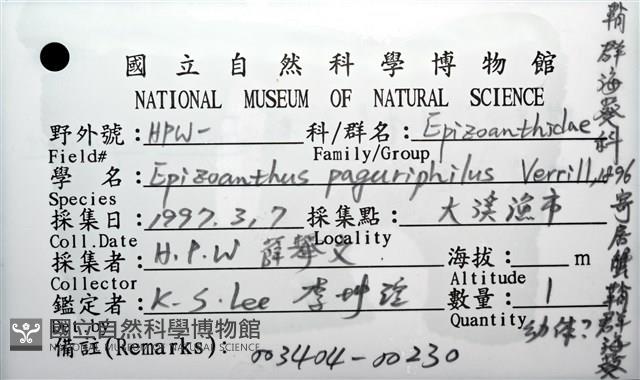 國立自然科學博物館
NATIONAL MUSEUM OF NATURAL SCIENCE
野外號:HPW- 科/群名:Epizoanthidae
Field# Family/Group
學 名:Epizoanthus paguriphilus Verrill,
Species
採集日:1997.3,7 採集點:大溪漁市
Coll.Date Locality
採集者:H.P.W 薛攀文 海拔: m
Collector Altitude
鑑定者:K-S.Lee 李坤瑄 數量:1
Det.by Quantity 幼体?
國立自然科學博物館
NATIONAL MUSEUM OF NATURAL SCIENCE
備註(Remarks): 003404-00230
鞘群海葵科
寄居蟹鞘群海葵